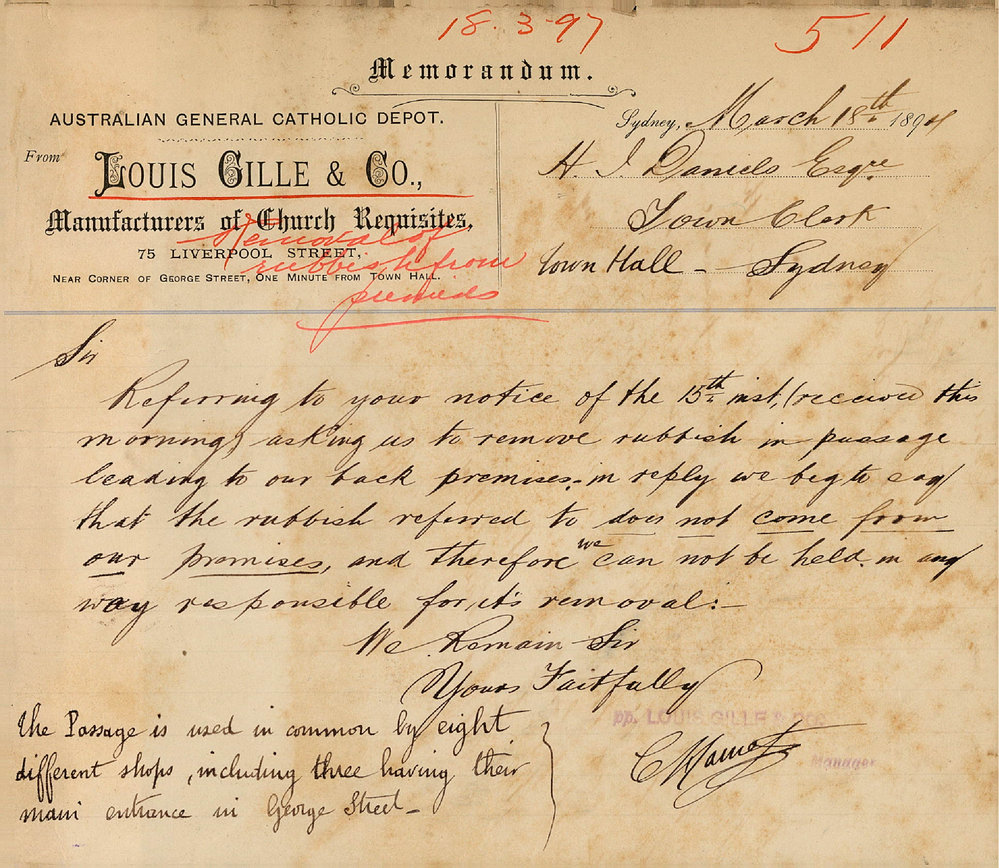 18.3-97
511
Memorandum.
AUSTRALIAN GENERAL CATHOLIC DEPOT.
From
LOUIS GILLE & CO.,
Manufacturers of Church Requisites,
75 LIVERPOOL STREET,
NEAR CORNER OF GEORGE STREET, ONE MINUTE FROM TOWN HALL.
Removal of
rubbish from
Sydney, March 18th 189
H. J. Daniels Esqre
Town Clerk
Town Hall - Sydney
Sir
Referring to your notice of the 15th inst, (received this
morning) asking us to remove rubbish in passage
leading to our back premises. in reply we beg to say
that the rubbish referred to does not come from
our premises, and therefore we can not be held in any
way responsible for it's removal:-
We Remain Sir
Yours Faitfully
pp. LOUIS GILLE & Co
Manager
The Passage is used in common by eight
different shops, including three having their
main entrance in George Street-